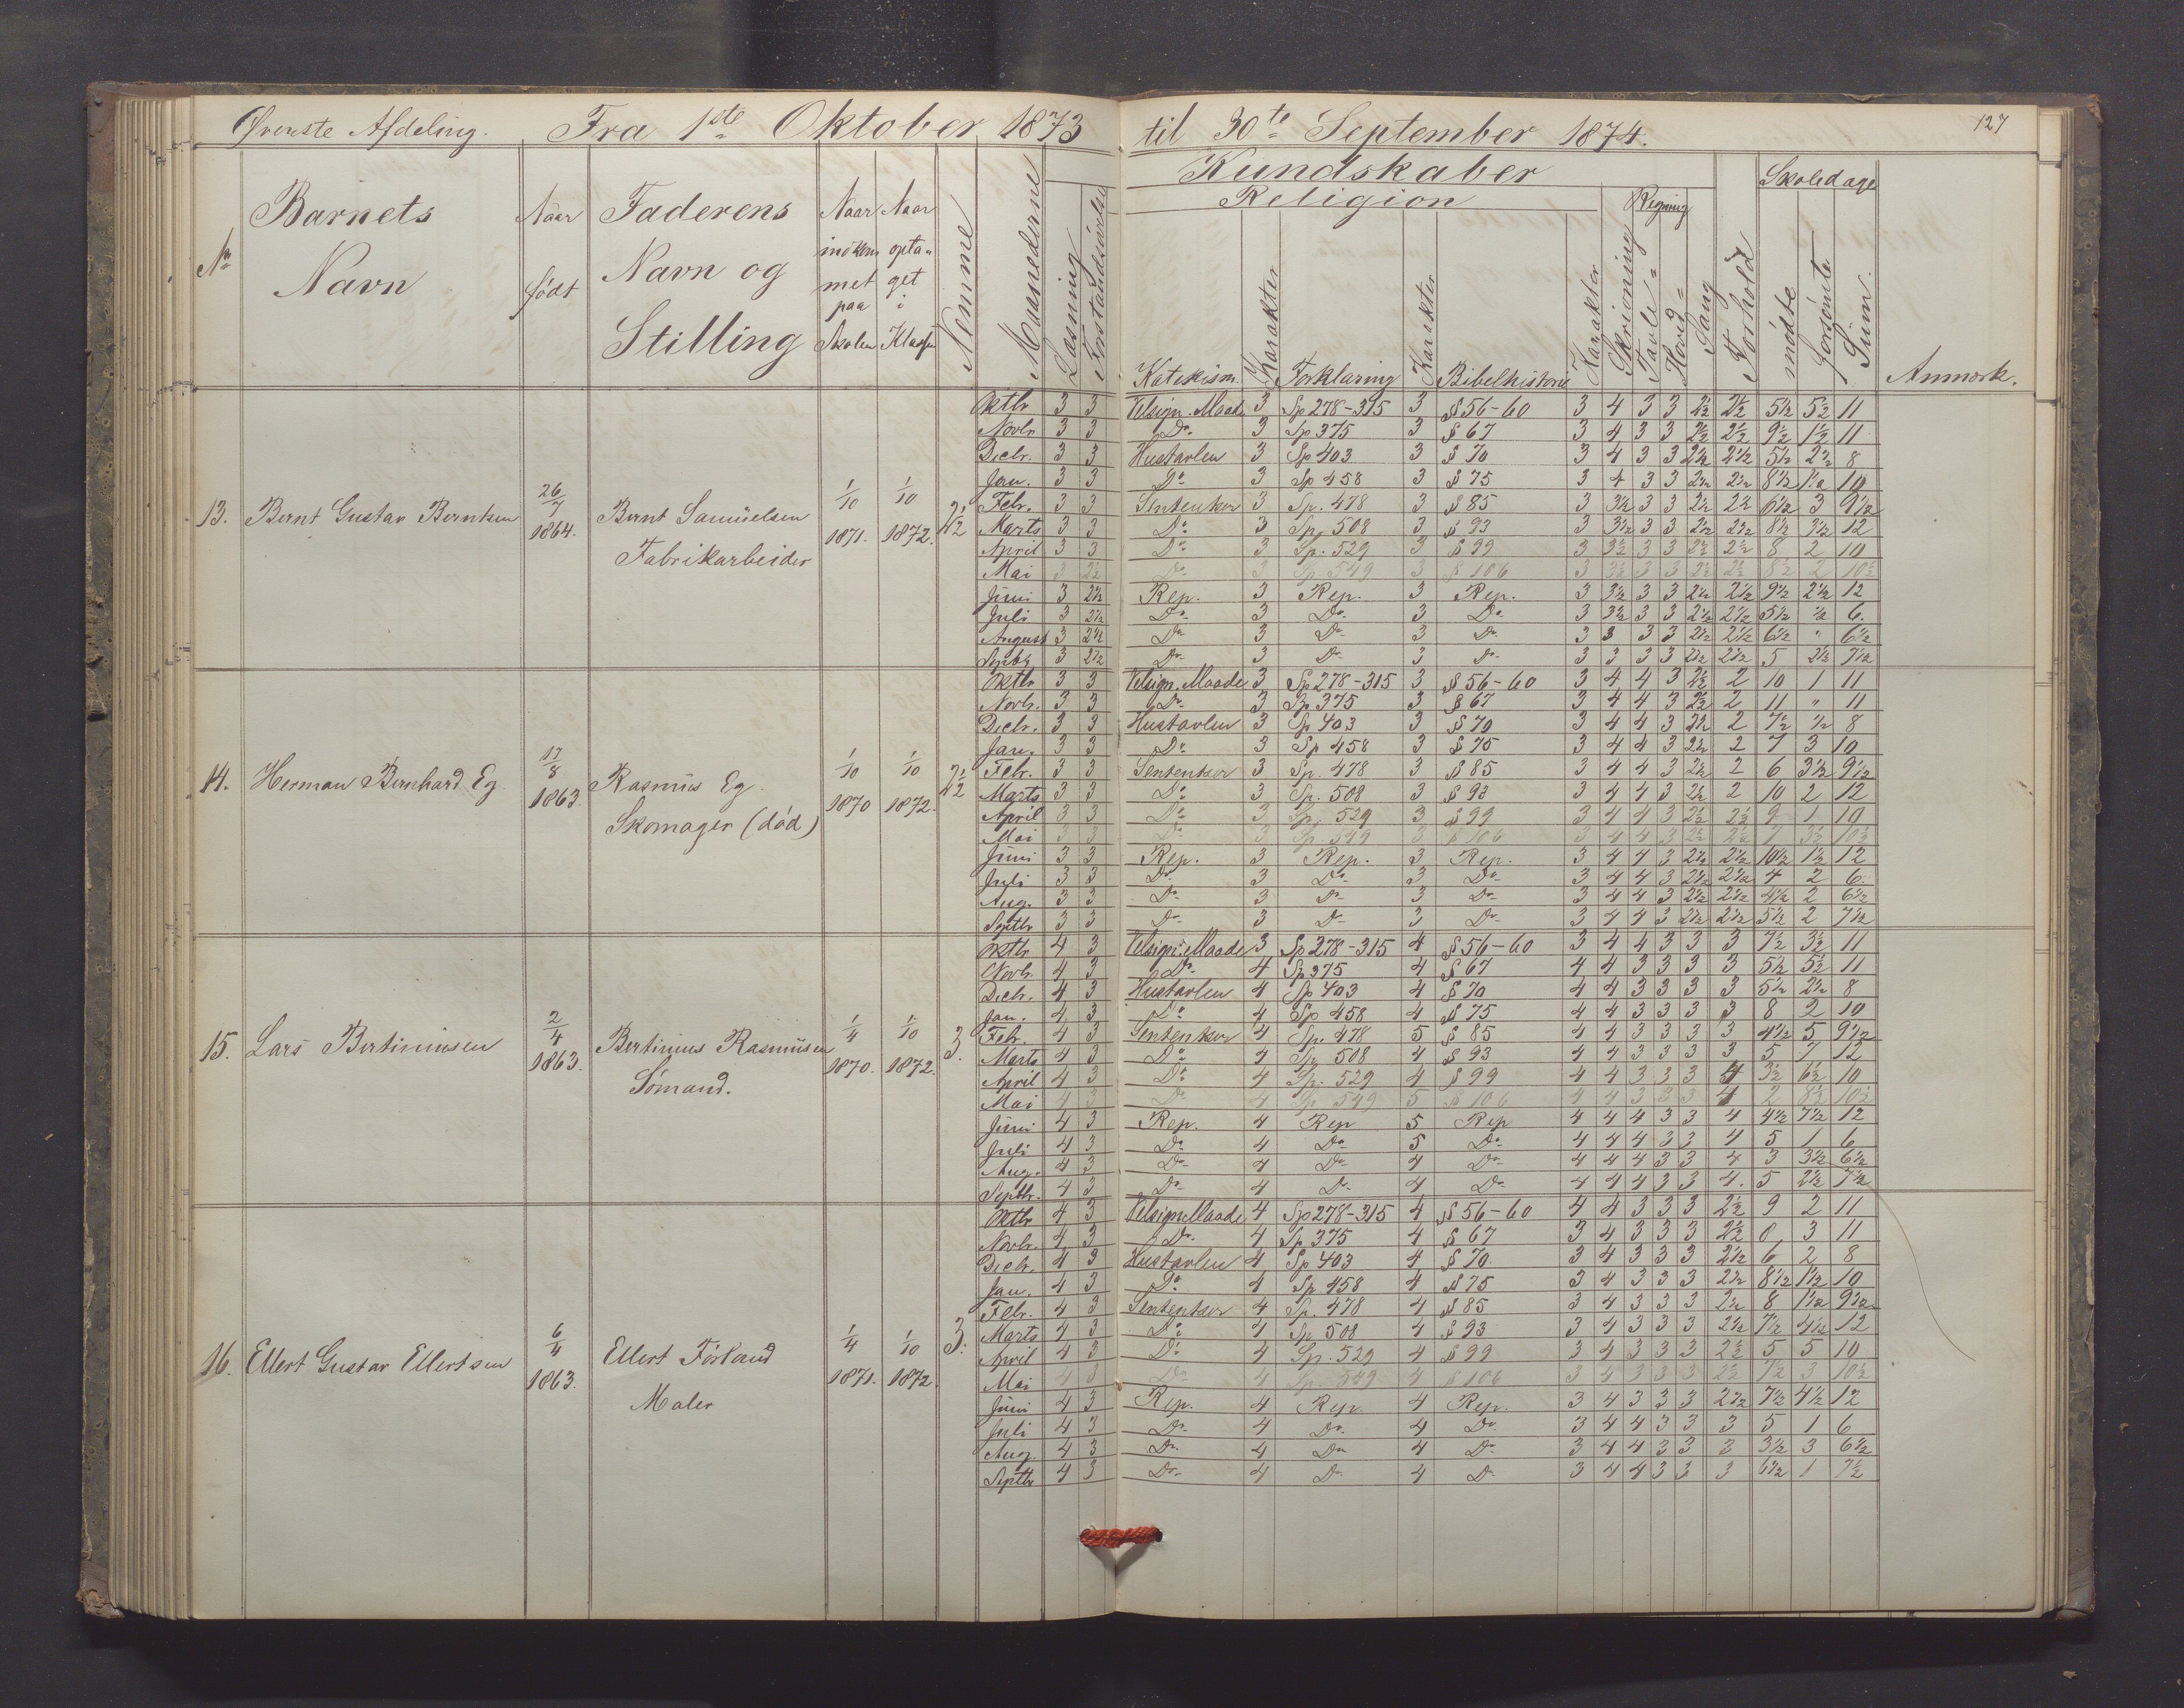 Øverste Afdeling. Fra 1ste Oktober 1873 til 30te September 1874. 127
Kundskaber
Religion Regning Skoledage
No Barnets Navn Naar født Faderens Navn og Stilling Naar indkommet paa Skolen Naar optaget i Klassen Nemme Maanederne Læsning Forstandsøvelse Katekism. Karakter Forklaring Karakter Bibelhistorie Karakter Skrivning Tavle= Hoved= Sang Forhold mødte forsømte Sum. Anmærk.
13. Bernt Gustav Berntsen 26/7 1864. Bernt Samüelsen Fabrikarbeider 1/10 1871. 1/10 1872. 2 1/2
Oktbr 3 3 Velsign. Maade 3 Sp 278-315 3 § 56-60 3 4 3 3 2½ 2½ 5½ 5½ 11
Novbr 3 3 Do 3 Sp 375 3 § 67 3 4 3 3 2½ 2½ 9½ 1½ 11
Decbr. 3 3 Hustavlen 3 Sp 403 3 § 70 3 4 3 3 2½ 2½ 5½ 2½ 8
Jan. 3 3 Do 3 Sp 458 3 § 75 3 4 3 3 2½ 2½ 8½ 1½ 10
Febr. 3 3 Sentenser 3 Sp. 478 3 § 85 3 3½ 3 3 2½ 2½ 6½ 3 9½
Marts 3 3 Do 3 Sp. 508 3 § 93 3 3½ 3 3 2½ 2½ 8½ 3½ 12
April 3 3 Do 3 Sp. 529 3 § 99 3 3½ 3 3 2½ 2½ 8 2 10
Mai 3 2½ Do 3 Sp 549 3 § 106 3 3½ 3 3 2½ 2½ 8½ 2 10½
Juni 3 2½ Rep. 3 Rep. 3 Rep. 3 3½ 3 3 2½ 2½ 9½ 2½ 12
Juli 3 2½ Do 3 Do 3 Do 3 3½ 3 3 2½ 2½ 5½ ½ 6.
August 3 2½ Do 3 Do 3 Do 3 3 3 3 2½ 2½ 6½ " 6½
Septbr 3 2½ Do 3 Do 3 Do 3 3 3 3 2½ 2½ 5 2½ 7½
14. Herman Bernhard Eg 17/8 1863. Rasmüs Eg. Skomager (død) 1/10 1870 1/10 1872. 2 1/2
Oktbr 3 3 Velsign. Maade 3 Sp 278-315 3 § 56-60 3 4 4 3 2½ 2 10 1 11
Novbr. 3 3 Do 3 Sp 375 3 § 67 3 4 4 3 2½ 2 11 " 11
Decbr. 3 3 Hustavlen 3 Sp 403 3 § 70 3 4 4 3 2½ 2 7½ ½ 8
Jan. 3 3 Do 3 Sp 458 3 § 75 3 4 4 3 2½ 2 7 3 10
Febr. 3 3 Sentenser 3 Sp. 478 3 § 85 3 4 4 3 2½ 2 6 3½ 9½
Marts 3 3 Do 3 Sp. 508 3 § 93 3 4 4 3 2½ 2 10 2 12
April 3 3 Do 3 Sp. 529 3 § 99 3 4 4 3 2½ 2½ 9 1 10
Mai 3 3 Do 3 Sp 549 3 § 106 3 4 4 3 2½ 2½ 7 3½ 10½
Juni 3 3 Rep. 3 Rep. 3 Rep. 3 4 4 3 2½ 2½ 10½ 1½ 12
Juli 3 3 Do 3 Do 3 Do 3 4 4 3 2½ 2½ 4 2 6.
Aug. 3 3 Do 3 Do 3 Do 3 4 4 3 2½ 2½ 4½ 2 6½
Septbr 3 3 Do 3 Do 3 Do 3 4 4 3 2½ 2½ 5½ 2 7½
15. Lars Bertiniusen 2/4 1863. Bertinius Rasmüsen Sømand. 1/4 1870. 1/10 1872. 3.
Oktbr 4 3 Velsign. Maade 3 Sp 278-315 4 § 56-60 3 4 4 3 3 3 7½ 3½ 11
Novbr. 4 3 Do 4 Sp 375 4 § 67 4 4 3 3 3 3 5½ 5½ 11
Decbr. 4 3 Hustavlen 4 Sp 403 4 § 70 4 4 3 3 3 3 5½ 2½ 8
Jan. 4 3 Do 4 Sp 458 4 § 75 4 4 3 3 3 3 8 2 10
Febr. 4 3 Sentenser 4 Sp. 478 5 § 85 4 4 3 3 3 3 4½ 5 9½
Marts 4 3 Do 4 Sp 508 4 § 93 4 4 3 3 3 3 5 7 12
April 4 3 Do 4 Sp. 529 4 § 99 4 4 3 3 3 4 3½ 6½ 10
Mai 4 3 Do 4 Sp 549 5 § 106 4 4 3 3 3 4 2 8½ 10½
Juni 4 3 Rep. 4 Rep 5 Rep 4 4 4 3 3 4 4½ 7½ 12
Juli 4 3 Do 4 Do 5 Do 4 4 4 3 3 4 5 1 6
Aug. 4 3 Do 4 Do 4 Do 4 4 4 3 3 4 3 3½ 6½
Septbr. 4 3 Do 4 Do 4 Do 4 4 4 3 3 4. 5 2½ 7½
16. Ellert Gustav Ellertsen 6/4 1863. Ellert Førland Maler 1/4 1871. 1/10 1872. 3.
Oktbr 4 3 Velsign. Maade 4 Sp 278-315 4 § 56-60 4 4 3 3 3 2½ 9 2 11
Novbr. 4 3 Do 4 Sp 375 4 § 67 3 4 3 3 3 2½ 8 3 11
Decbr. 4 3 Hustavlen 4 Sp 403 4 § 70. 3 4 3 3 3 2½ 6 2 8
Jan. 4 3 Do 4 Sp 458 4 § 75 3 4 3 3 3 2½ 8½ 1½ 10
Febr. 4 3 Sentenser 4 Sp. 478 4 § 85 3 4 3 3 3 2½ 8 1½ 9½
Marts 4 3 Do 4 Sp 508 4 § 93 3 4 3 3 3 2½ 7½ 4½ 12
April 4 3 Do 4 Sp. 529 4 § 99 3 4 3 3 3 2½ 5 5 10
Mai 4 3 Do 4 Sp. 549 4 § 106 3 4 3 3 3 2½ 7½ 3 10½
Juni 4 3 Rep. 4 Rep. 4 Rep. 3 4 3 3 3 2½ 7½ 4½ 12
Juli 4 3 Do 4 Do 4 Do 3 4 4 3 3 3 5 1 6
Aug. 4 3 Do 4 Do 4 Do 3 4 4 3 3 3 3½ 3 6½
Septbr 4 3 Do 4 Do 4 Do 3 4 4 3 3 3 6½ 1 7½